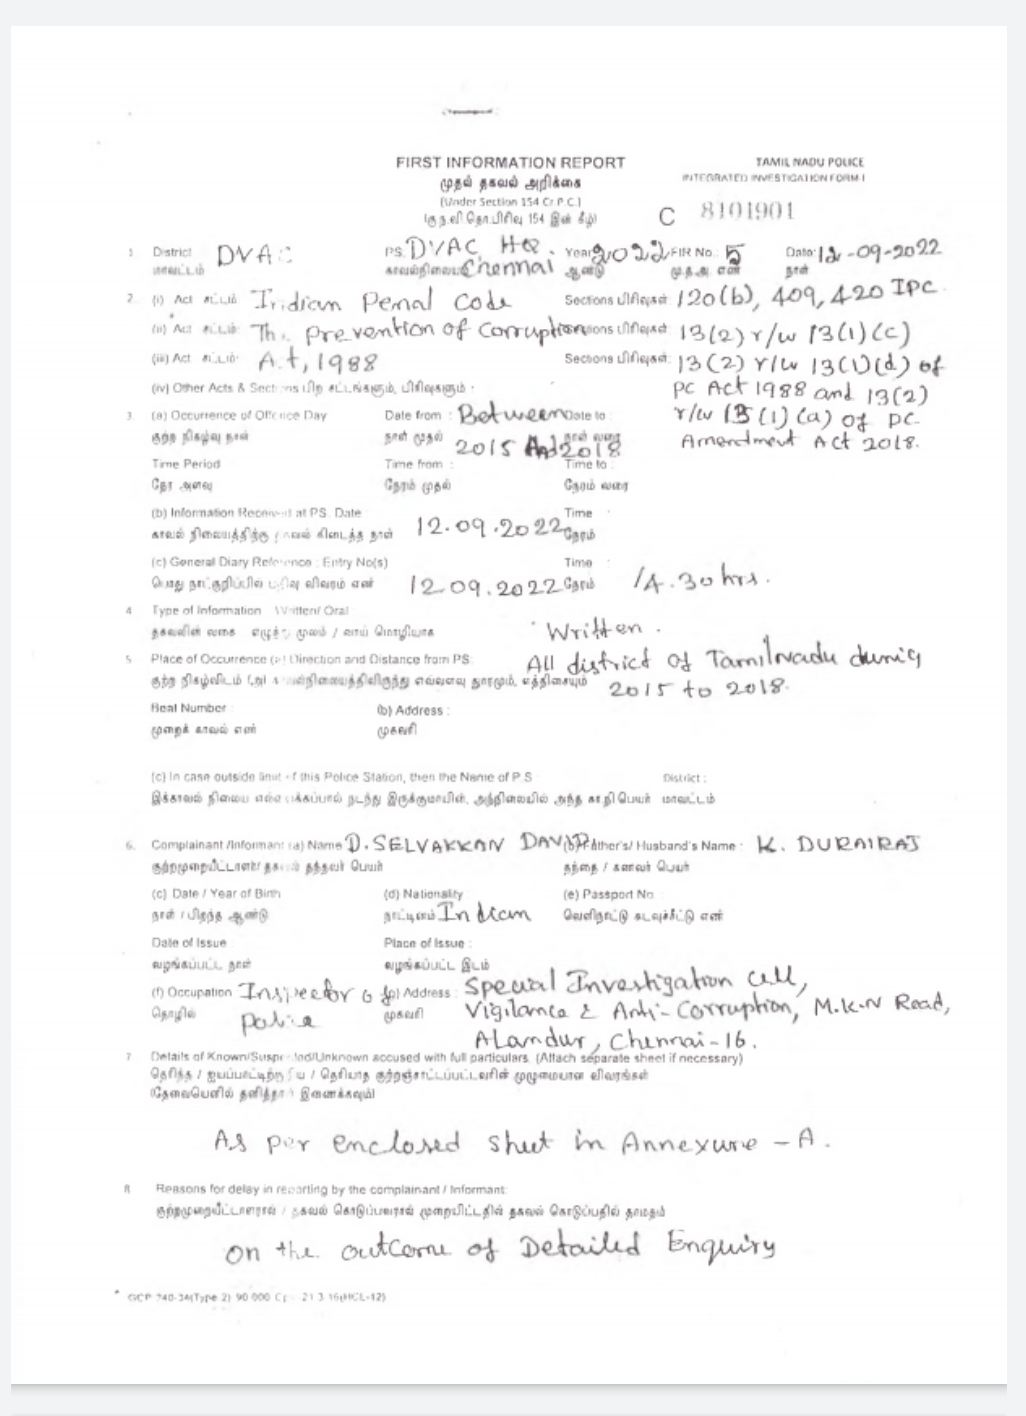 FIRST INFORMATION REPORT
TAMIL NADU POLICE
முதல் தகவல் அறிக்கை
INTEGRATED INVESTIGATION FORM-I
(Under Section 154 Cr.P.C.)
(கு.ந.வி.தொ.பிரிவு 154 இன் கீழ்)
C 8101901
1. District DVAC PS. DVAC, HQ. Year 2022 FIR No.: 5 Date: 12-09-2022
மாவட்டம் காவல்நிலைய Chennai ஆண்டு மு.த.அ. எண் நாள்
2. (i) Act சட்டம் Indian Penal Code Sections பிரிவுகள் 120(b), 409, 420 IPC
(ii) Act சட்டம் The Prevention of Corruption Sections பிரிவுகள் 13(2) r/w 13(1)(c)
(iii) Act சட்டம் Act, 1988 Sections பிரிவுகள்: 13(2) r/w 13(1)(d) of
(iv) Other Acts & Sections பிற சட்டங்களும், பிரிவுகளும் : PC Act 1988 and 13(2)
3. (a) Occurrence of Offence Day Date from : Between Date to : r/w 13(1)(a) of PC
குற்ற நிகழ்வு நாள் நாள் முதல் 2015 And 2018 நாள் வரை Amendment Act 2018.
Time Period Time from : Time to :
நேர அளவு நேரம் முதல் நேரம் வரை
(b) Information Received at PS. Date : Time :
காவல் நிலையத்திற்கு தகவல் கிடைத்த நாள் 12.09.2022 நேரம்
(c) General Diary Reference : Entry No(s) Time :
பொது நாட்குறிப்பில் பதிவு விவரம் எண் 12.09.2022 நேரம் 14.30 hrs.
4 Type of Information : Written/ Oral
தகவலின் வகை எழுத்து மூலம் / வாய் மொழியாக Written.
5. Place of Occurrence (a) Direction and Distance from PS: All district of Tamilnadu during
குற்ற நிகழ்விடம் (அ) காவல்நிலையத்திலிருந்து எவ்வளவு தூரமும், எத்திசையும் 2015 to 2018.
Beat Number : (b) Address :
முறைக் காவல் எண் முகவரி
(c) In case outside limit of this Police Station, then the Name of P.S District :
இக்காவல் நிலைய எல்லைக்கப்பால் நடந்து இருக்குமாயின், அந்நிலையில் அந்த கா.நி.பெயர் மாவட்டம்
6. Complainant /Informant (a) Name D. SELVAKKAN DAVID (b) Father's/ Husband's Name : K. DURAIRAJ
குற்றமுறையீட்டாளர்/ தகவல் தந்தவர் பெயர் தந்தை / கணவர் பெயர்
(c) Date / Year of Birth (d) Nationality : (e) Passport No
நாள் / பிறந்த ஆண்டு நாட்டினம் Indian வெளிநாட்டு கடவுச்சீட்டு எண்
Date of Issue Place of Issue :
வழங்கப்பட்ட நாள் வழங்கப்பட்ட இடம்
(f) Occupation Inspector of (g) Address : Special Investigation cell,
தொழில் Police முகவரி Vigilance & Anti-Corruption, M.K.N Road,
Alandur, Chennai-16.
7 Details of Known/Suspected/Unknown accused with full particulars. (Attach separate sheet if necessary)
தெரிந்த / ஐயப்பாட்டிற்குரிய / தெரியாத குற்றஞ்சாட்டப்பட்டவரின் முழுமையான விவரங்கள்
(தேவையெனில் தனித்தாள் இணைக்கவும்)
As per enclosed sheet in Annexure - A.
8 Reasons for delay in reporting by the complainant / Informant:
குற்றமுறையீட்டாளரால் / தகவல் கொடுப்பவரால் முறையிட்டதில் தகவல் கொடுப்பதில் தாமதம்
On the outcome of Detailed Enquiry